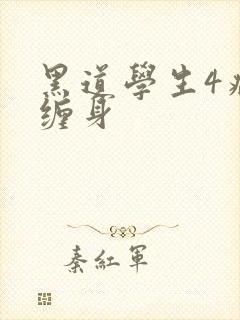 黑道學生4
缠身
秦紅軍